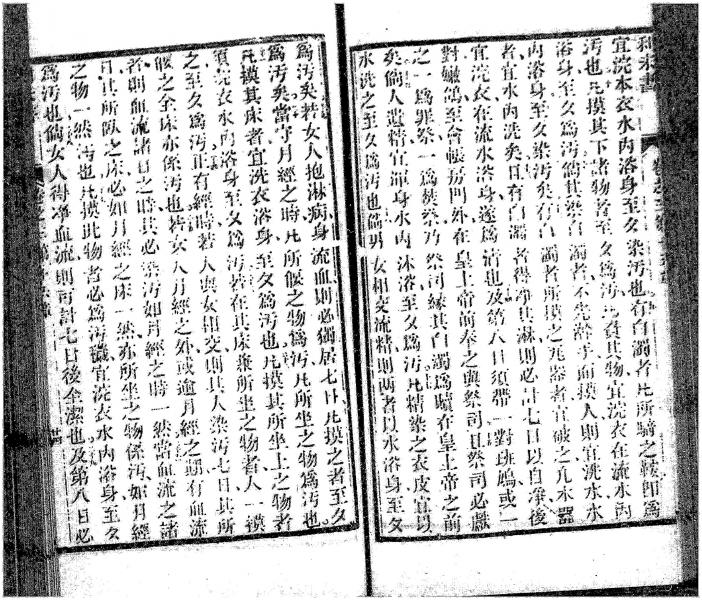 宜浣本衣水內浴身至夕染汚也有白濁者凢所騎之鞍卽爲
汚也凢摸其下諸物者至夕爲汚凢負其物宜浣衣在流水內
浴身至夕爲汚倘其染白濁者不先濯手而摸人則宜洗水
內浴身至夕染汚矣有白濁者所摸之瓦器者宜破之凢木器
者宜水內洗矣旦有白濁者得凈其淋則必計七日以自凈後
宜浣衣在流水浴身遂爲潔也及第八日須帶一對班鳩或一
對鴿至會帳房門外在皇上帝前奉之與祭司且祭司必獻
之一爲罪祭一爲焚祭乃祭司緣其白濁爲贖在皇上帝之前
矣倘人遺精宜渾身水內沐浴至夕爲汚凢精染之衣皮宜以
水洗之至夕爲汚也倘男女相交流精則兩者以水浴身至夕
爲汚矣若女人抱淋病身流血則必獨居七日凢摸之者至夕
爲汚矣當守月經之時凢所偃之物爲汚凢所坐之物爲汚也
凢摸其床者宜洗衣浴身至夕爲汚也凢摸其所坐上之物者
須浣衣水內浴身至夕爲汚若在其床兼所坐之物者人一摸
之至夕爲汚正有經時若人與女相交則其人染汚七日其所
偃之全床亦係汚也若女人月經之外或逾月經之期有血流
者則血流諸日之時其必染汚如月經之時一然當血流之諸
日其所臥之床必如月經之床一然亦所坐之物係汚如月經
之物一然汚也凢摸此物者必爲汚穢宜浣衣水內浴身至夕
爲汚也倘女人得凈血流則可計七日後全潔也及第八日必